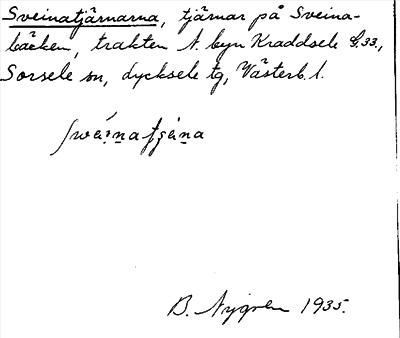 Sveinatjärnarna, tjärnar på Sveina-
bäcken, trakten N. byn Kraddsele
Sorsele sn, Lycksele tg, Västerb. l.
B. Nygren 1935.